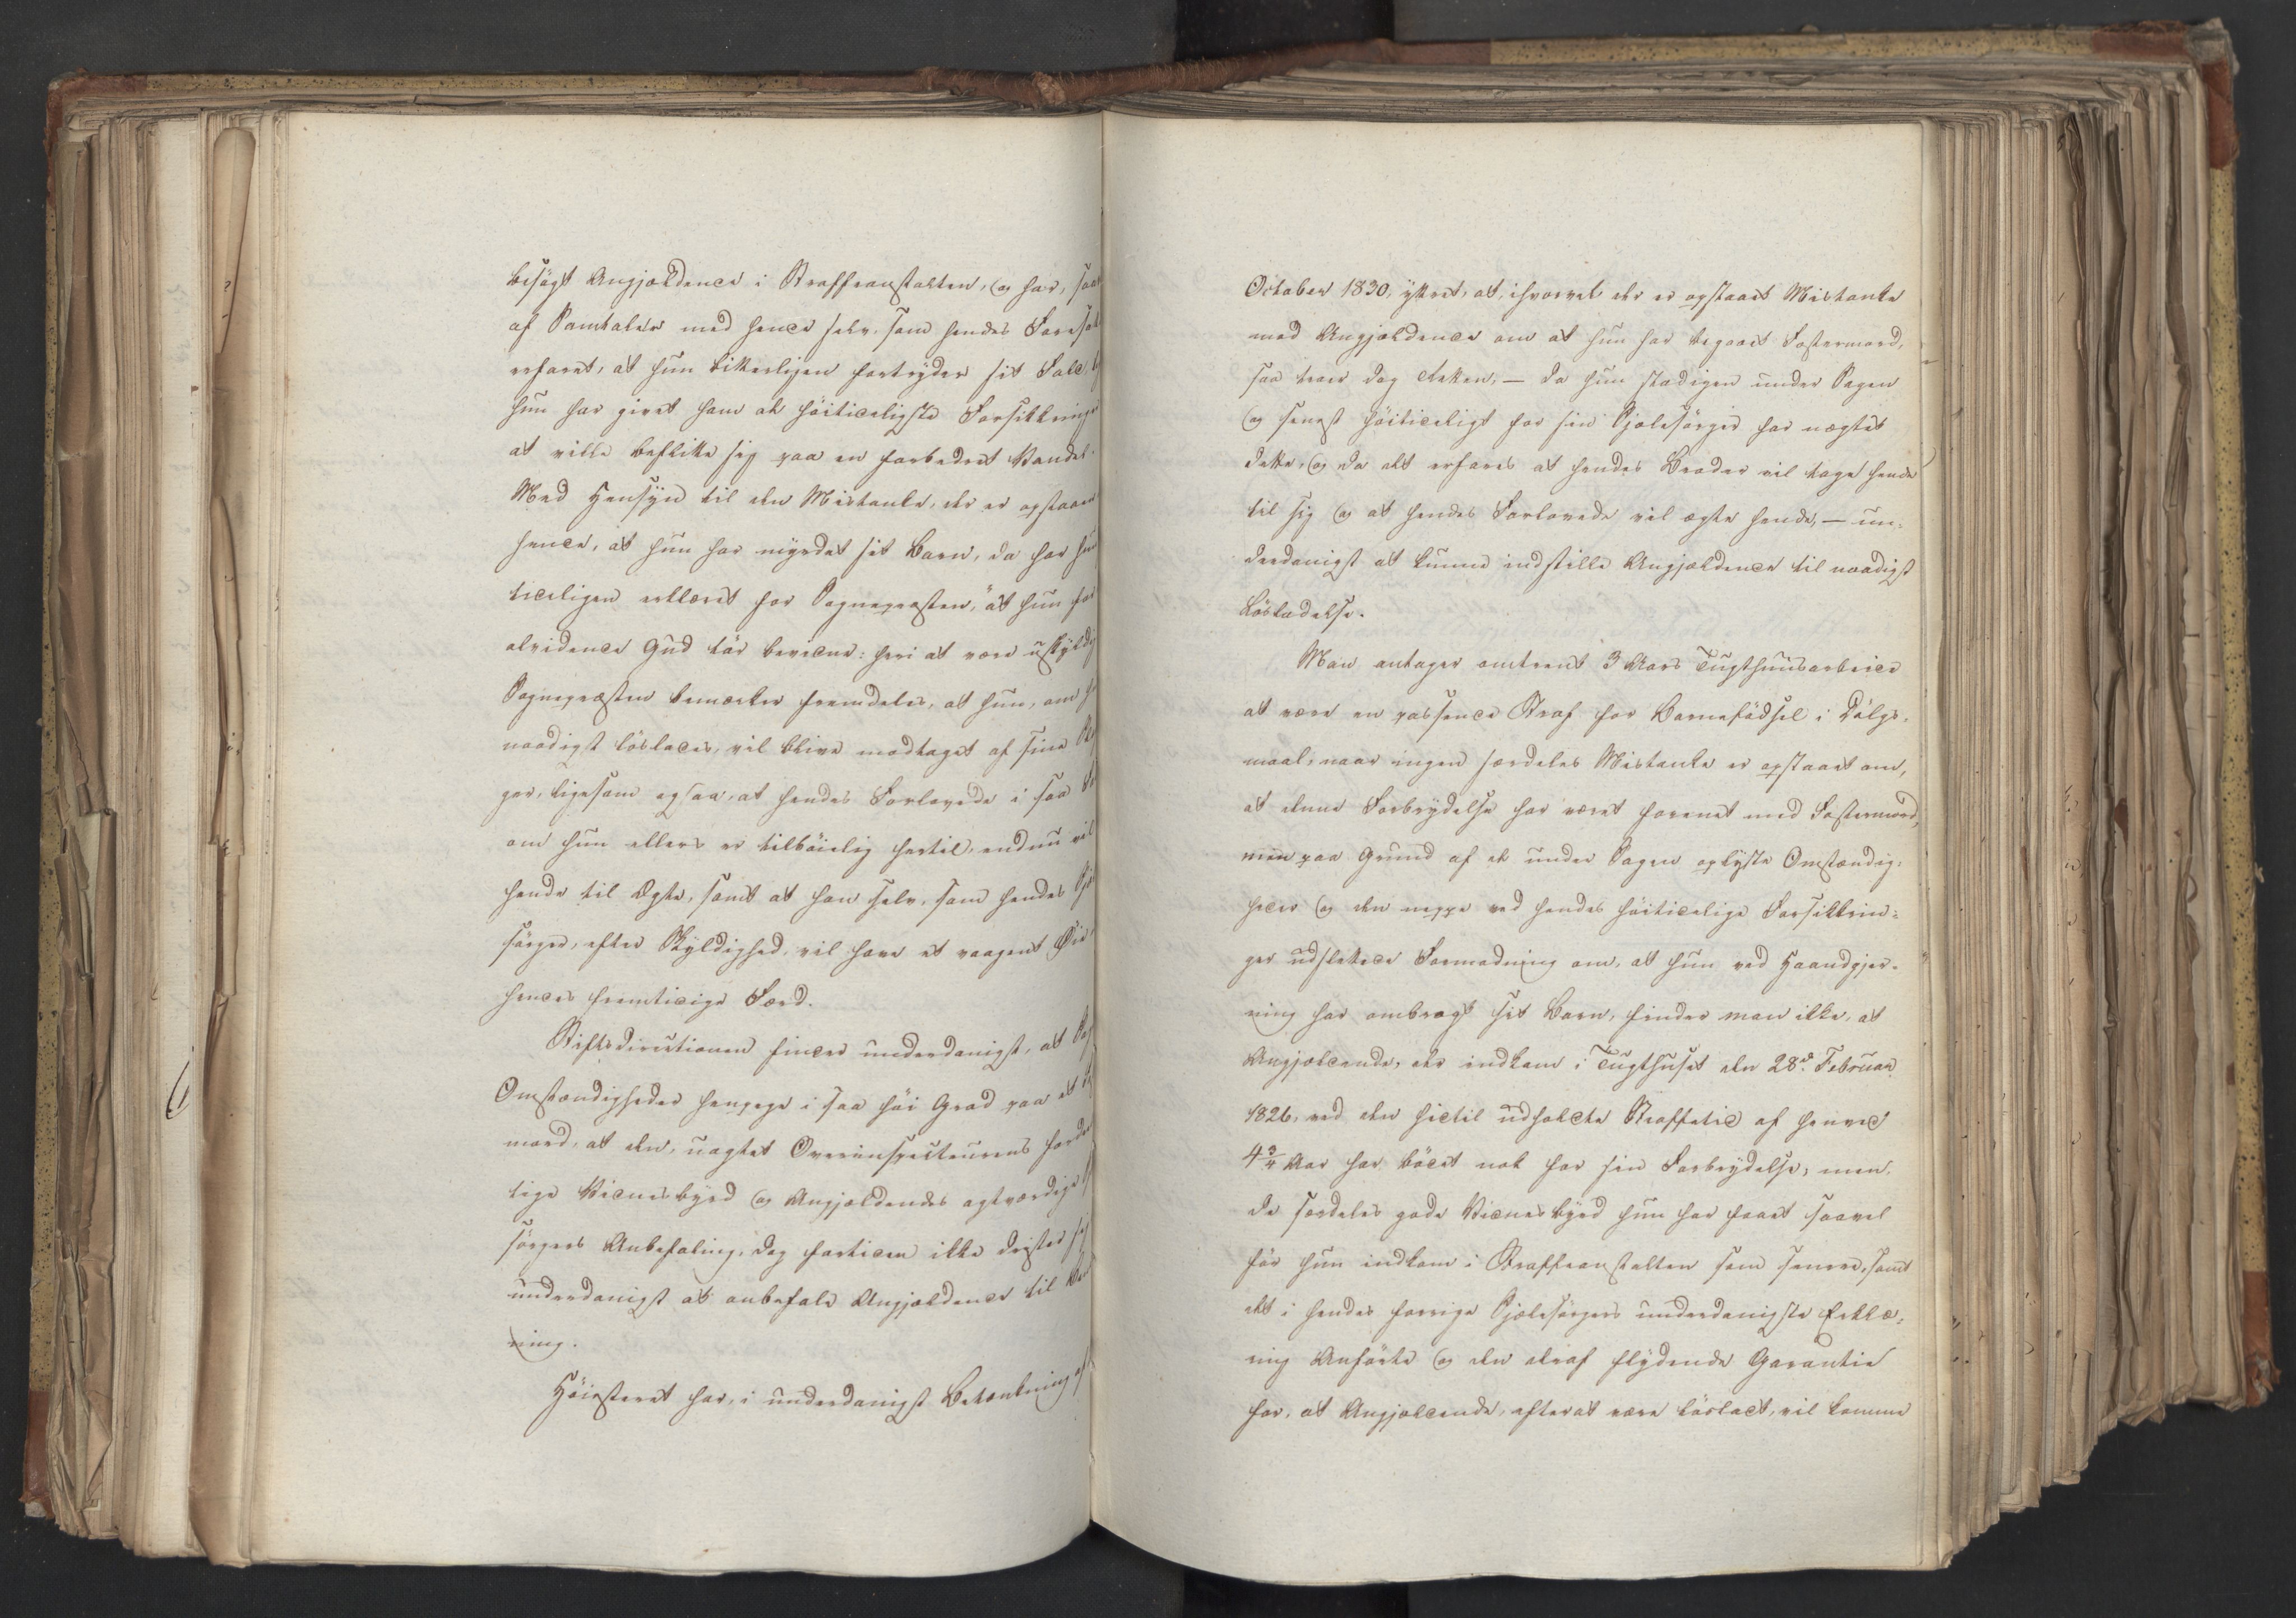 besögt Angjældende i Straffeanstalten, og har, saa
af Samtaler med hende selv, som hendes Foresat
erfaret, at hun bitterligen fortryder sit Fald,
hun har givet ham de höitideligste Forsikkringer
at ville beflitte sig paa en forbedret Vandel.
Med Hensyn til den Mistanke, der er opstaaet
hende, at hun har myrdet sit Barn, da har hun
tideligen erklæret for Sognepræsten, "at hun for
alvidende Gud tör bevidne: heri at være uskyldig
Sognepræsten bemærker fremdeles, at hun, om h
naadigst löslades, vil blive modtaget af sine
ger, ligesom ogsaa, at hendes Forlovede i saa
om hun ellers er tilböielig hertil, endnu vil
hende til Ægte, samt at han selv, som hendes Sjæ
sörger, efter Skyldighed, vil have et vaagent Öie
hendes fremtidige Færd.
Stiftsdirectionen finder underdanigst, at
Omstændigheder henpege i saa höi Grad paa et
mord, at den, uagtet Overinspecteurens fordeel
tige Vidnesbyrd og Angjældendes agtværdige
sörgers Anbefaling, dog fortiden ikke drister sig
underdanigst at anbefale Angjældende til
ning.
Höiesteret har, i underdanigst Betænkning af
October 1830, yttret, at, ihvorvel der er opstaaet Mistanke
mod Angjældende om at hun har begaaet Fostermord,
saa troer dog Retten, – da hun stadigen under Sagen
og senest höitideligt for sin Sjælesörger har nægtet
dette, og da det erfares at hendes Broder vil tage hende
til sig og at hendes Forlovede vil ægte hende, – un-
derdanigst at kunne indstille Angjældende til naadigst
Lösladelse.
Man antager omtrent 3 Aars Tugthuusarbeide
at være en passende Straf for Barnefödsel i Dölgs-
maal, naar ingen særdeles Mistanke er opstaaet om,
at denne Forbrydelse har været forenet med Fostermord,
men paa Grund af de under Sagen oplyste Omstændig-
heder og den neppe ved hendes höitidelige Forsikkrin-
ger udslettede Formodning om, at hun ved Haandgjer-
ning har ombragt sit Barn, finder man ikke, at
Angjældende, der indkom i Tugthuset den 28de Februar
1826, ved den hidtil udholdte Straffetid af henved
4 3/4 Aar har bödet nok for sin Forbrydelse; men,
de særdeles gode Vidnesbyrd hun har faaet saavel
för hun indkom i Straffeanstalten som senere, samt
det i hendes forrige Sjælesörgers underdanigste Erklæ-
ring Anförte og den deraf flydende Garantie
for, at Angjældende, efterat være lösladt, vil komme